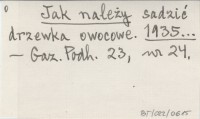 Jak należy sadzić
drzewka owocowe. 1935...
— Gaz. Podh. 23, nr 24.